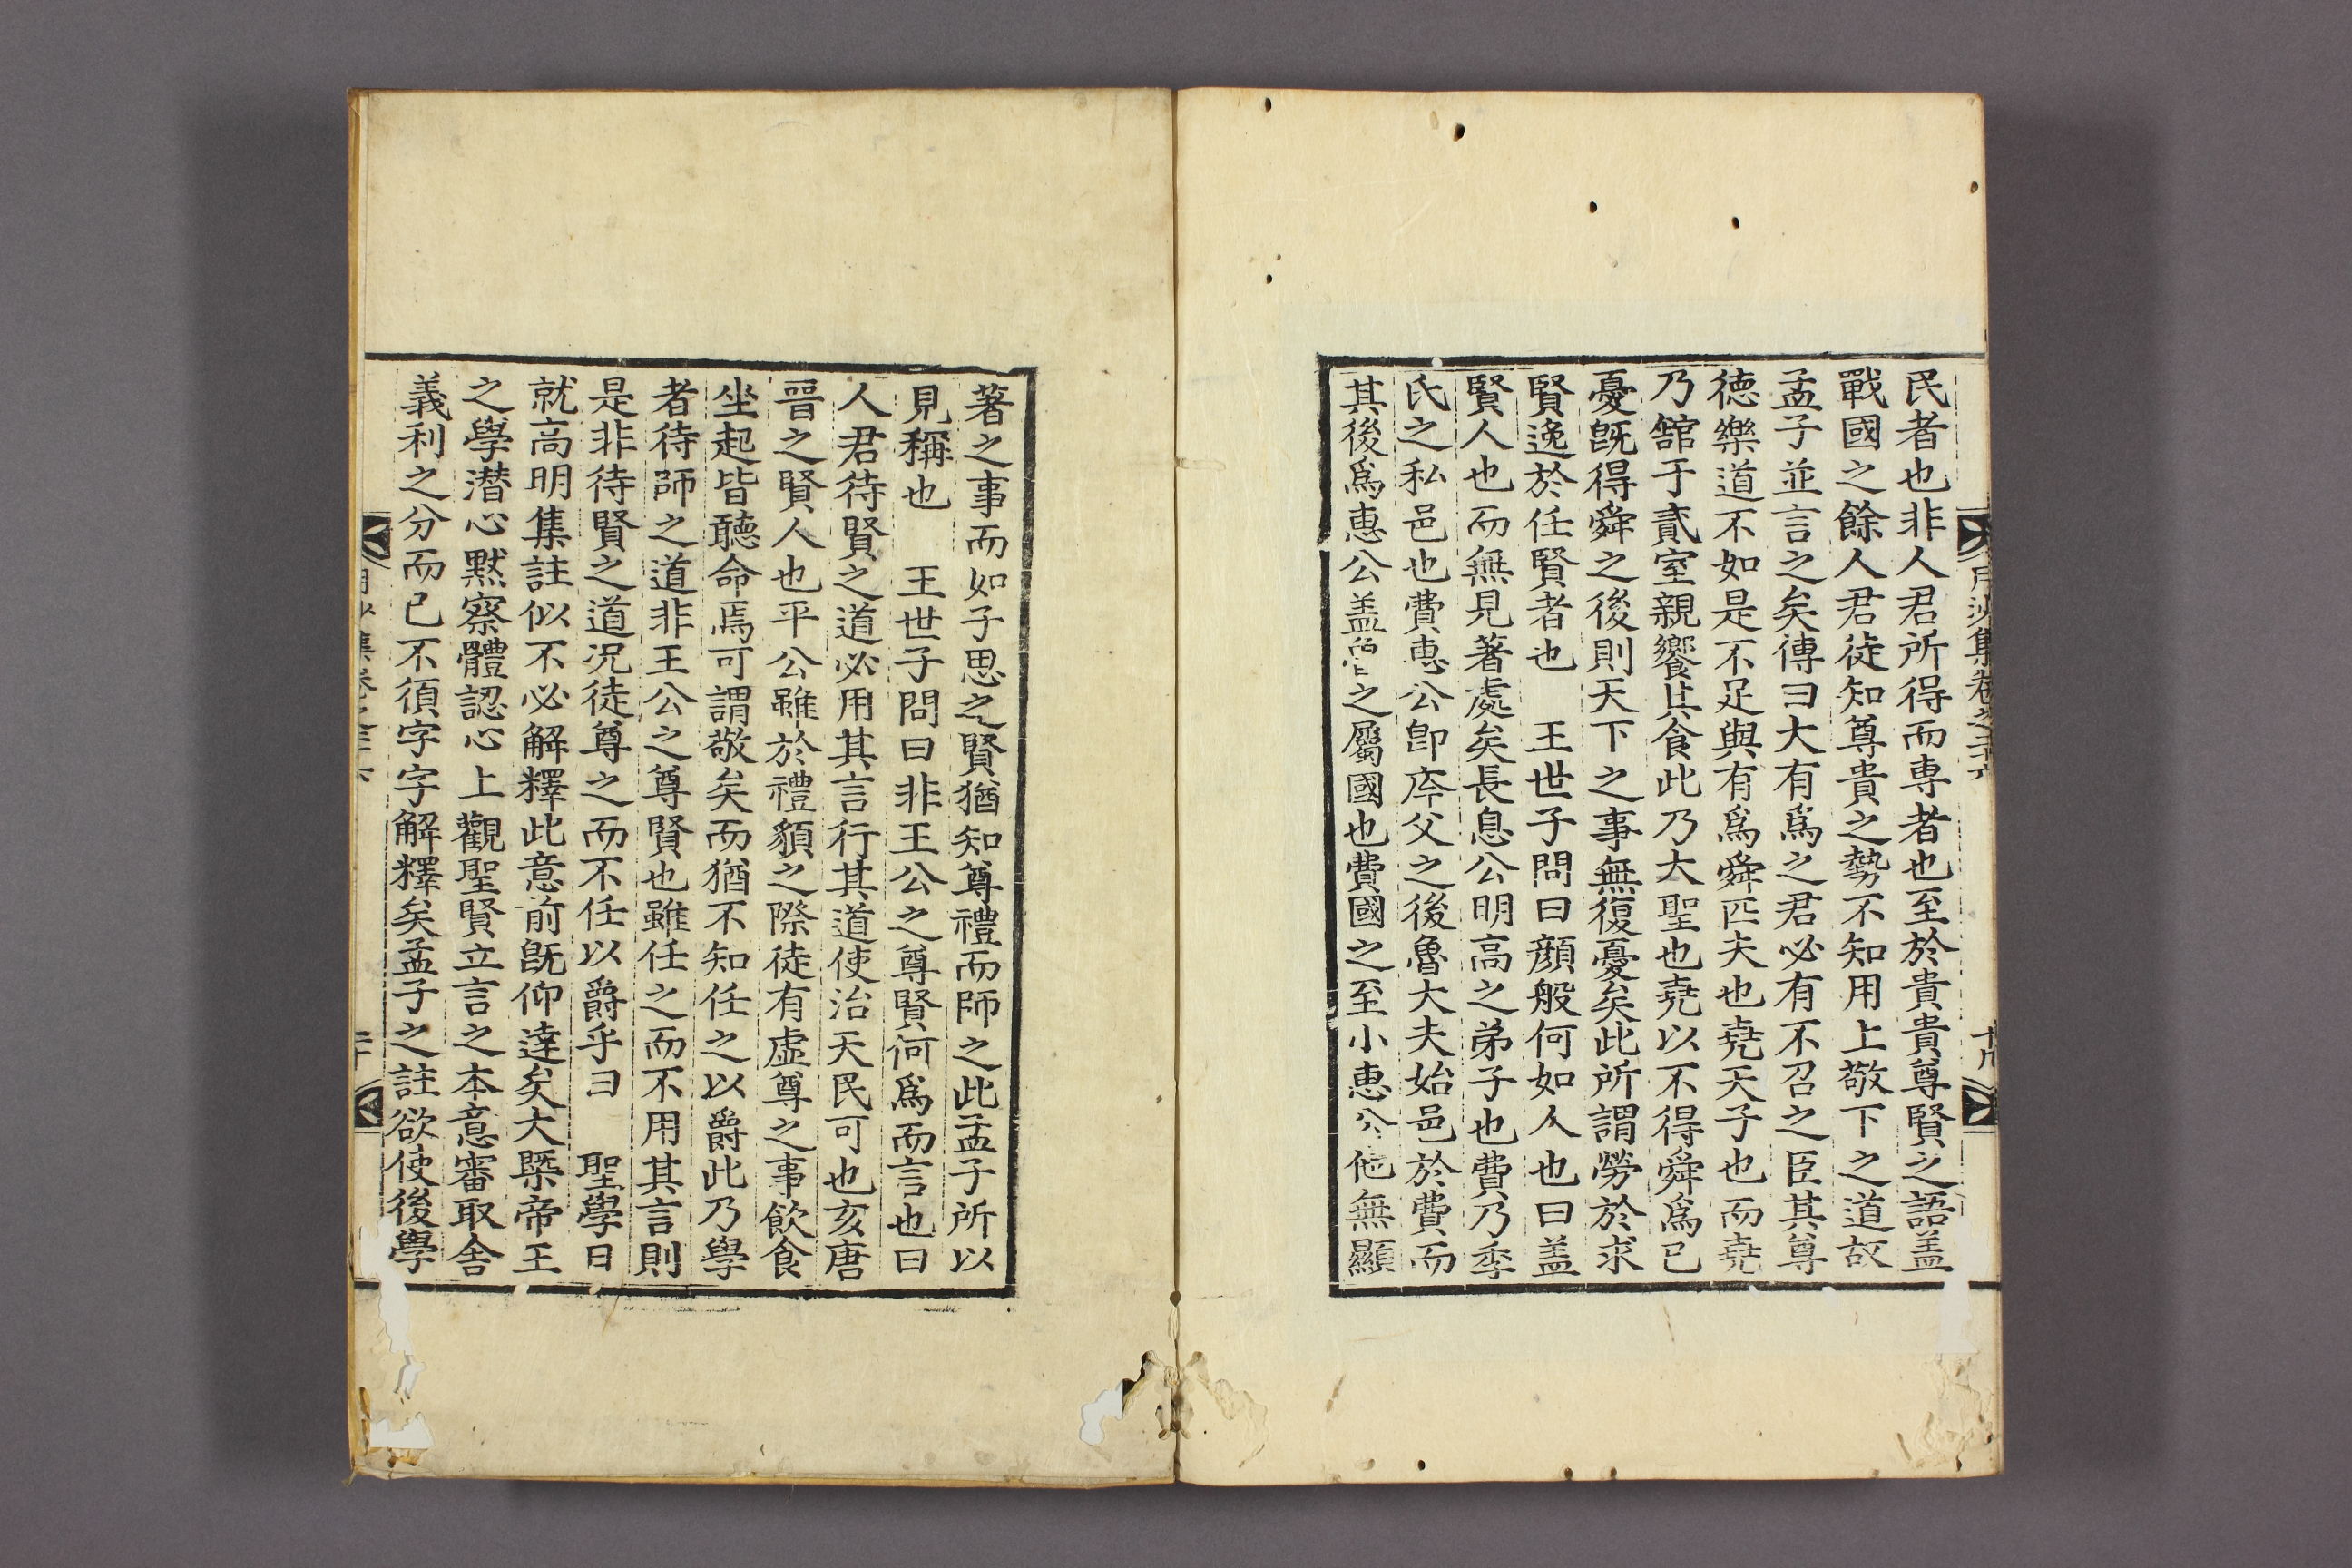 月沙集卷之三十六
十九
民者也非人君所得而専者也至於貴貴尊賢之語盖
戰國之餘人君徒知尊貴之勢不知用上敬下之道故
孟子並言之矣傳曰大有爲之君必有不召之臣其尊
德樂道不如是不足與有爲舜匹夫也堯天子也而堯
乃舘于貳室親饗其食此乃大聖也堯以不得舜爲已
憂旣得舜之後則天下之事無復憂矣此所謂勞於求
賢逸於任賢者也　王世子問曰顔般何如人也曰盖
賢人也而無見著處矣長息公明高之弟子也費乃季
氏之私邑也費惠公卽庈父之後魯大夫始邑於費而
其後爲惠公盖之屬國也費國之至小惠公他無顯
著之事而如子思之賢猶知尊禮而師之此孟子所以
見稱也　王世子問曰非王公之尊賢何爲而言也曰
人君待賢之道必用其言行其道使治天民可也亥唐
晉之賢人也平公雖於禮貌之際徒有虛尊之事飮食
坐起皆聽命焉可謂敬矣而猶不知任之以爵此乃學
者待師之道非王公之尊賢也雖任之而不用其言則
是非待賢之道况徒尊之而不任以爵乎曰　聖學日
就高明集註似不必解釋此意前旣仰達矣大槩帝王
之學潜心黙察體認心上觀聖賢立言之本意審取舍
義利之分而已不須字字解釋矣孟子之註欲使後學
二十